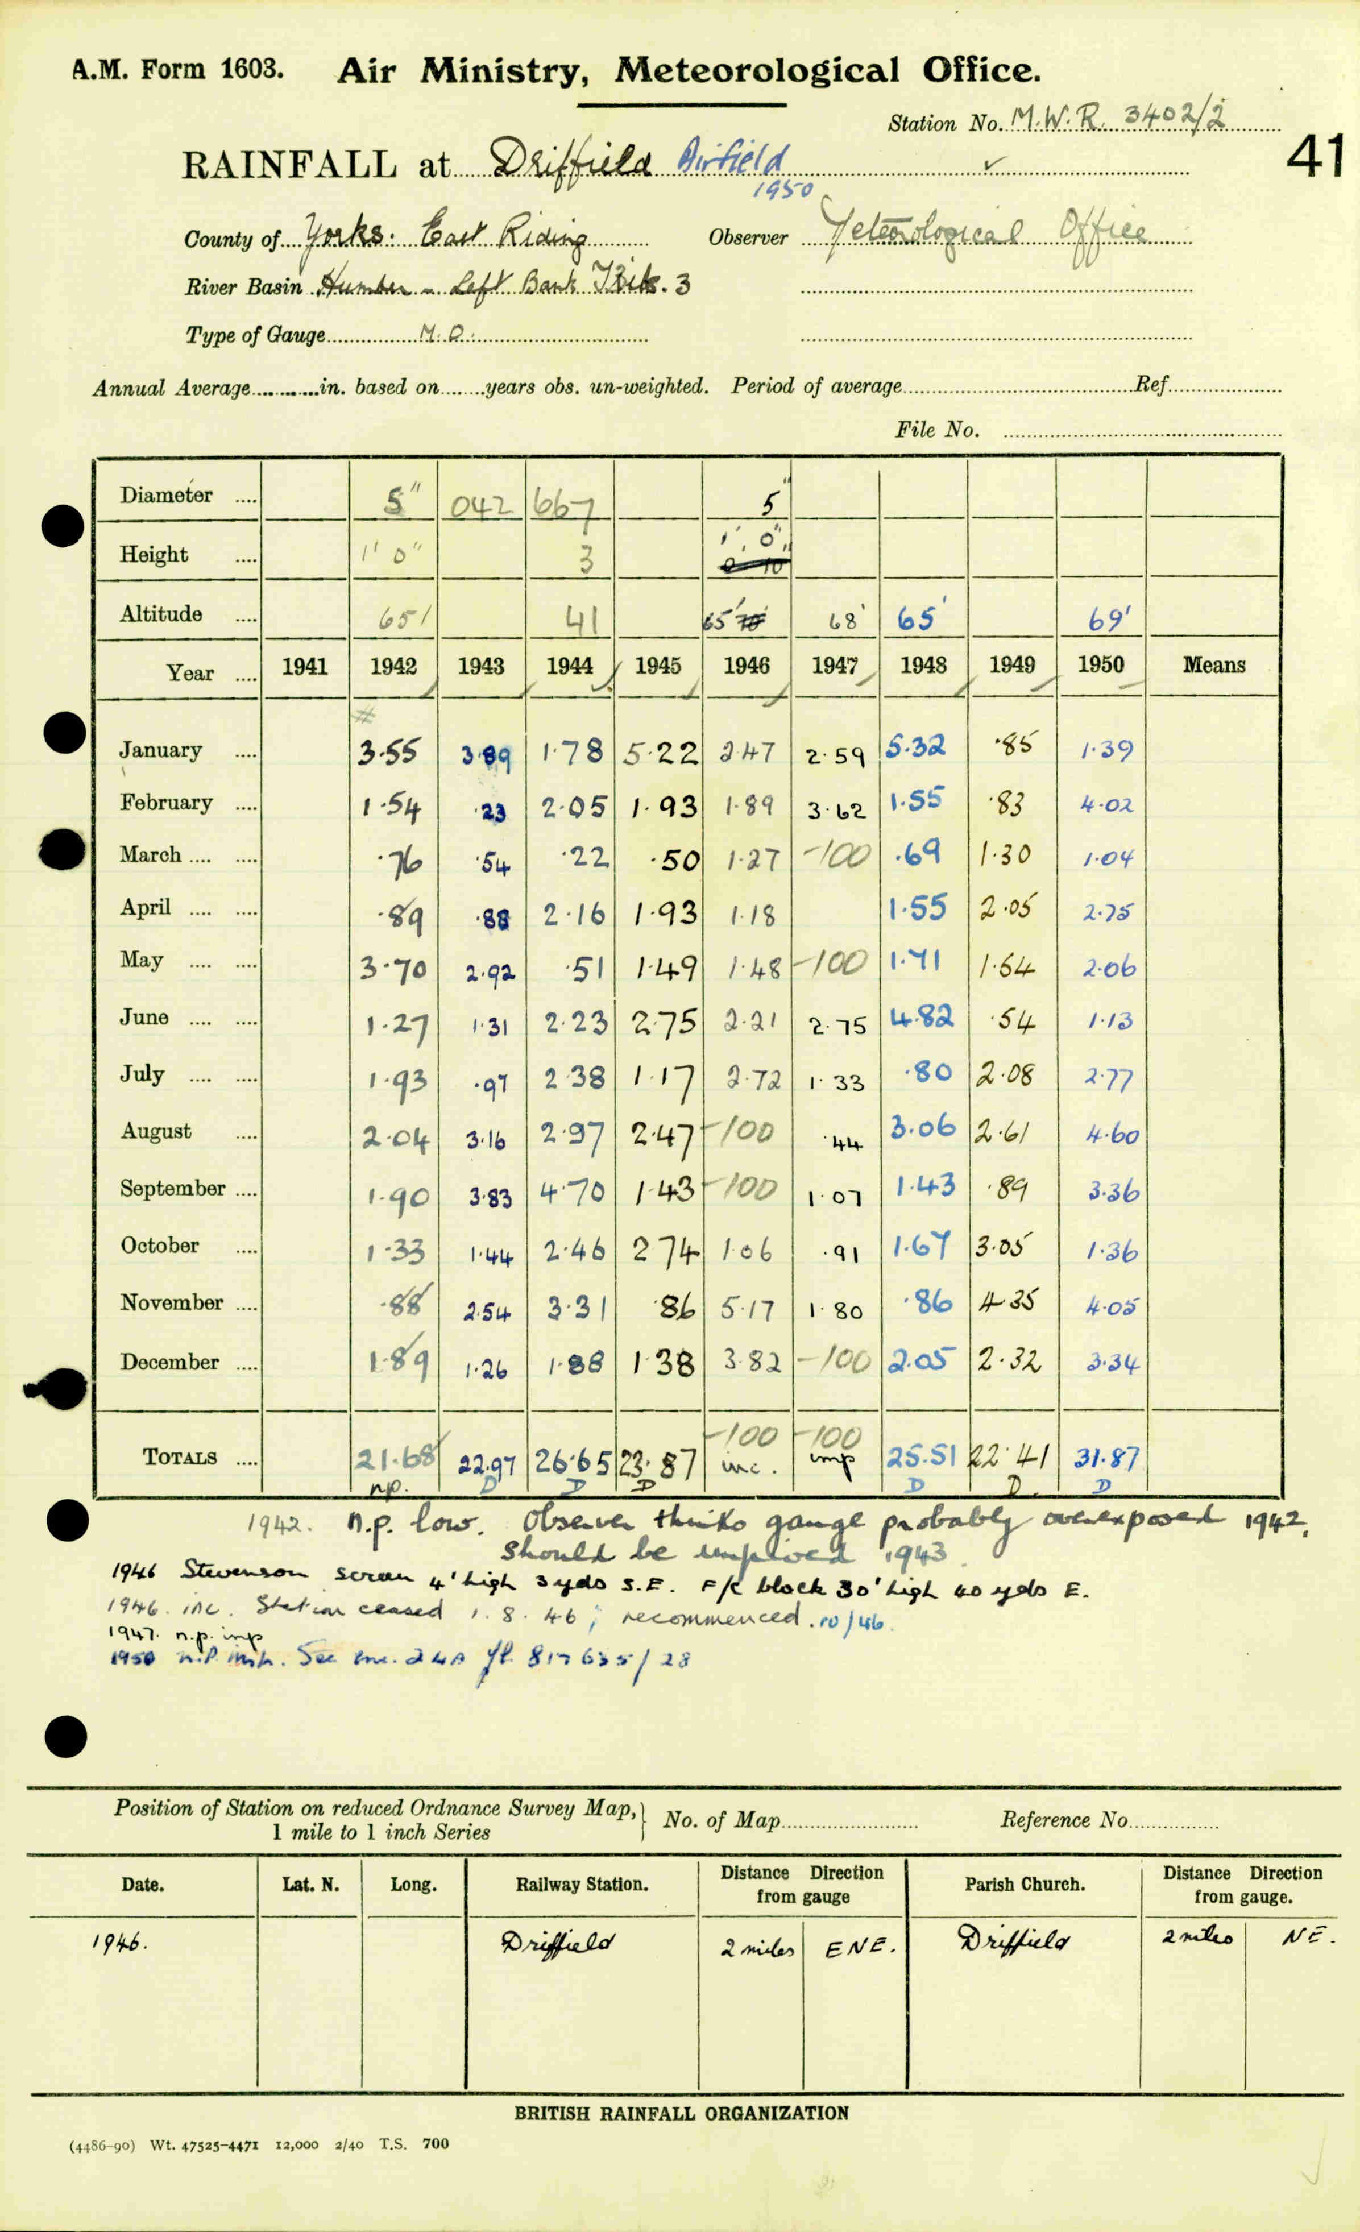 A.M. Form 1603. Air Ministry, Meteorological Office.
Station No. M.W.R. 3402/2
41
RAINFALL at Driffield Airfield
1950
County of Yorks. East Riding Observer Meteorological Office
River Basin Humber - Left Bank Tribs. 3
Type of Gauge M.O.
Annual Average in. based on years obs. un-weighted. Period of average Ref
File No.
Diameter 5" 042 667 5"
Height 1' 0" 3 1', 0"
Altitude 65' 41 65' 68' 65' 69'
Year 1941 1942 1943 1944 1945 1946 1947 1948 1949 1950 Means
#
January 3.55 3.89 1.78 5.22 2.47 2.59 5.32 .85 1.39
February 1.54 .23 2.05 1.93 1.89 3.62 1.55 .83 4.02
March .76 .54 .22 .50 1.27 -100 .69 1.30 1.04
April .89 .88 2.16 1.93 1.18 1.55 2.05 2.75
May 3.70 2.92 .51 1.49 1.48 -100 1.71 1.54 2.06
June 1.27 1.31 2.23 2.75 2.21 2.75 4.82 .54 1.13
July 1.93 .97 2.38 1.17 2.72 1.33 .80 2.08 2.77
August 2.04 3.16 2.97 2.47 -100 .44 3.06 2.61 4.60
September 1.90 3.83 4.70 1.43 -100 1.07 1.43 .89 3.36
October 1.33 1.44 2.46 2.74 1.06 .91 1.67 3.05 1.36
November .88 2.54 3.31 .86 5.17 1.80 .86 4.35 4.05
December 1.89 1.26 1.88 1.38 3.82 -100 2.05 2.32 3.34
-100 -100
TOTALS 21.68 22.97 26.65 23.87 inc. imp 25.51 22.41 31.87
n.p. D D D D D. D
1942. n.p. low. Observer thinks gauge probably overexposed 1942.
Should be improved 1943.
1946 Stevenson screen 4' high 3 yds S.E. F/C block 30' high 40 yds E.
1946. inc. Station ceased 1.8.46; recommenced 10/46.
1947. n.p. imp
1950 n.p. See enc. 24A 817635/28
Position of Station on reduced Ordnance Survey Map, No. of Map Reference No.
1 mile to 1 inch Series
Date. Lat. N. Long. Railway Station. Distance Direction from gauge Parish Church. Distance Direction from gauge.
1946. Driffield 2 miles ENE. Driffield 2 miles NE.
BRITISH RAINFALL ORGANIZATION
(4486-90) Wt. 47525-4471 12,000 2/40 T.S. 700